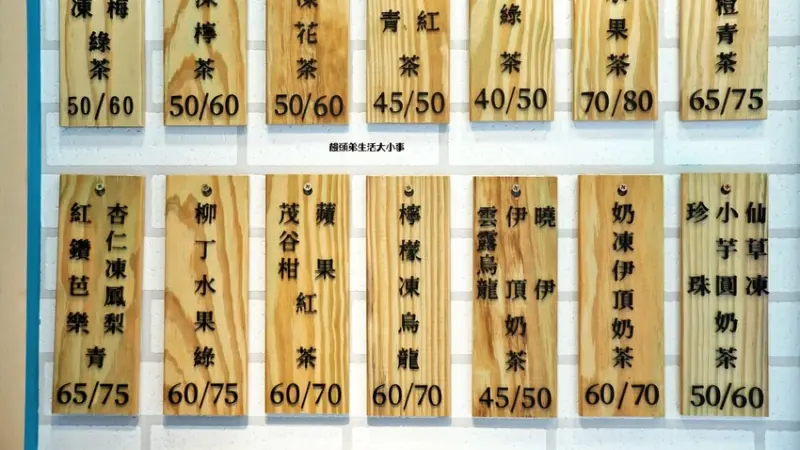 梅
凍
綠茶
50/60
檸茶
50/60
花茶
50/60
紅
青
茶
45/50
綠茶
40/50
水果茶
70/80
橙青茶
65/75
饅頭弟生活大小事
杏仁凍鳳梨
紅鑽芭樂
青
65/75
柳丁水果綠
60/75
蘋果
茂谷柑
紅茶
60/70
檸檬凍烏龍
60/70
曉伊
伊頂奶茶
雲露烏龍
45/50
奶凍伊頂奶茶
60/70
仙草凍
小芋圓奶茶
珍珠
50/60